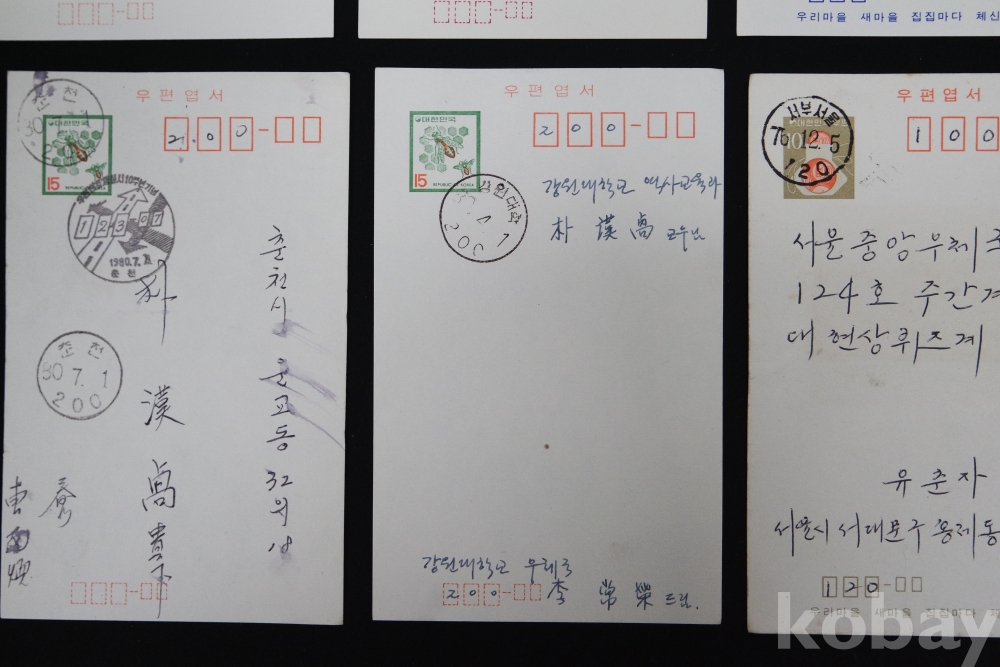 우리마을 새마을 집집마다 체신
춘천
우편엽서
대한민국
15
REPUBLIC OF KOREA
200
123-07
1980.7.1
춘천
춘천시 운교동 32의 18
朴漢卨 貴下
춘천
80.7.1
200
우편엽서
대한민국
15
REPUBLIC OF KOREA
200
강원대학
7.1
200
강원대학교 역사교육과
朴漢卨 교수님
강원대학교 우체국
200
李常榮 드림.
우편엽서
서부서울
76.12.5
120
대한민국
100
서울중앙우체국
124호 주간
대현상퀴즈계
유춘자
서울시 서대문구 홍제동
120
우리마을 새마을 집집마다
kobay